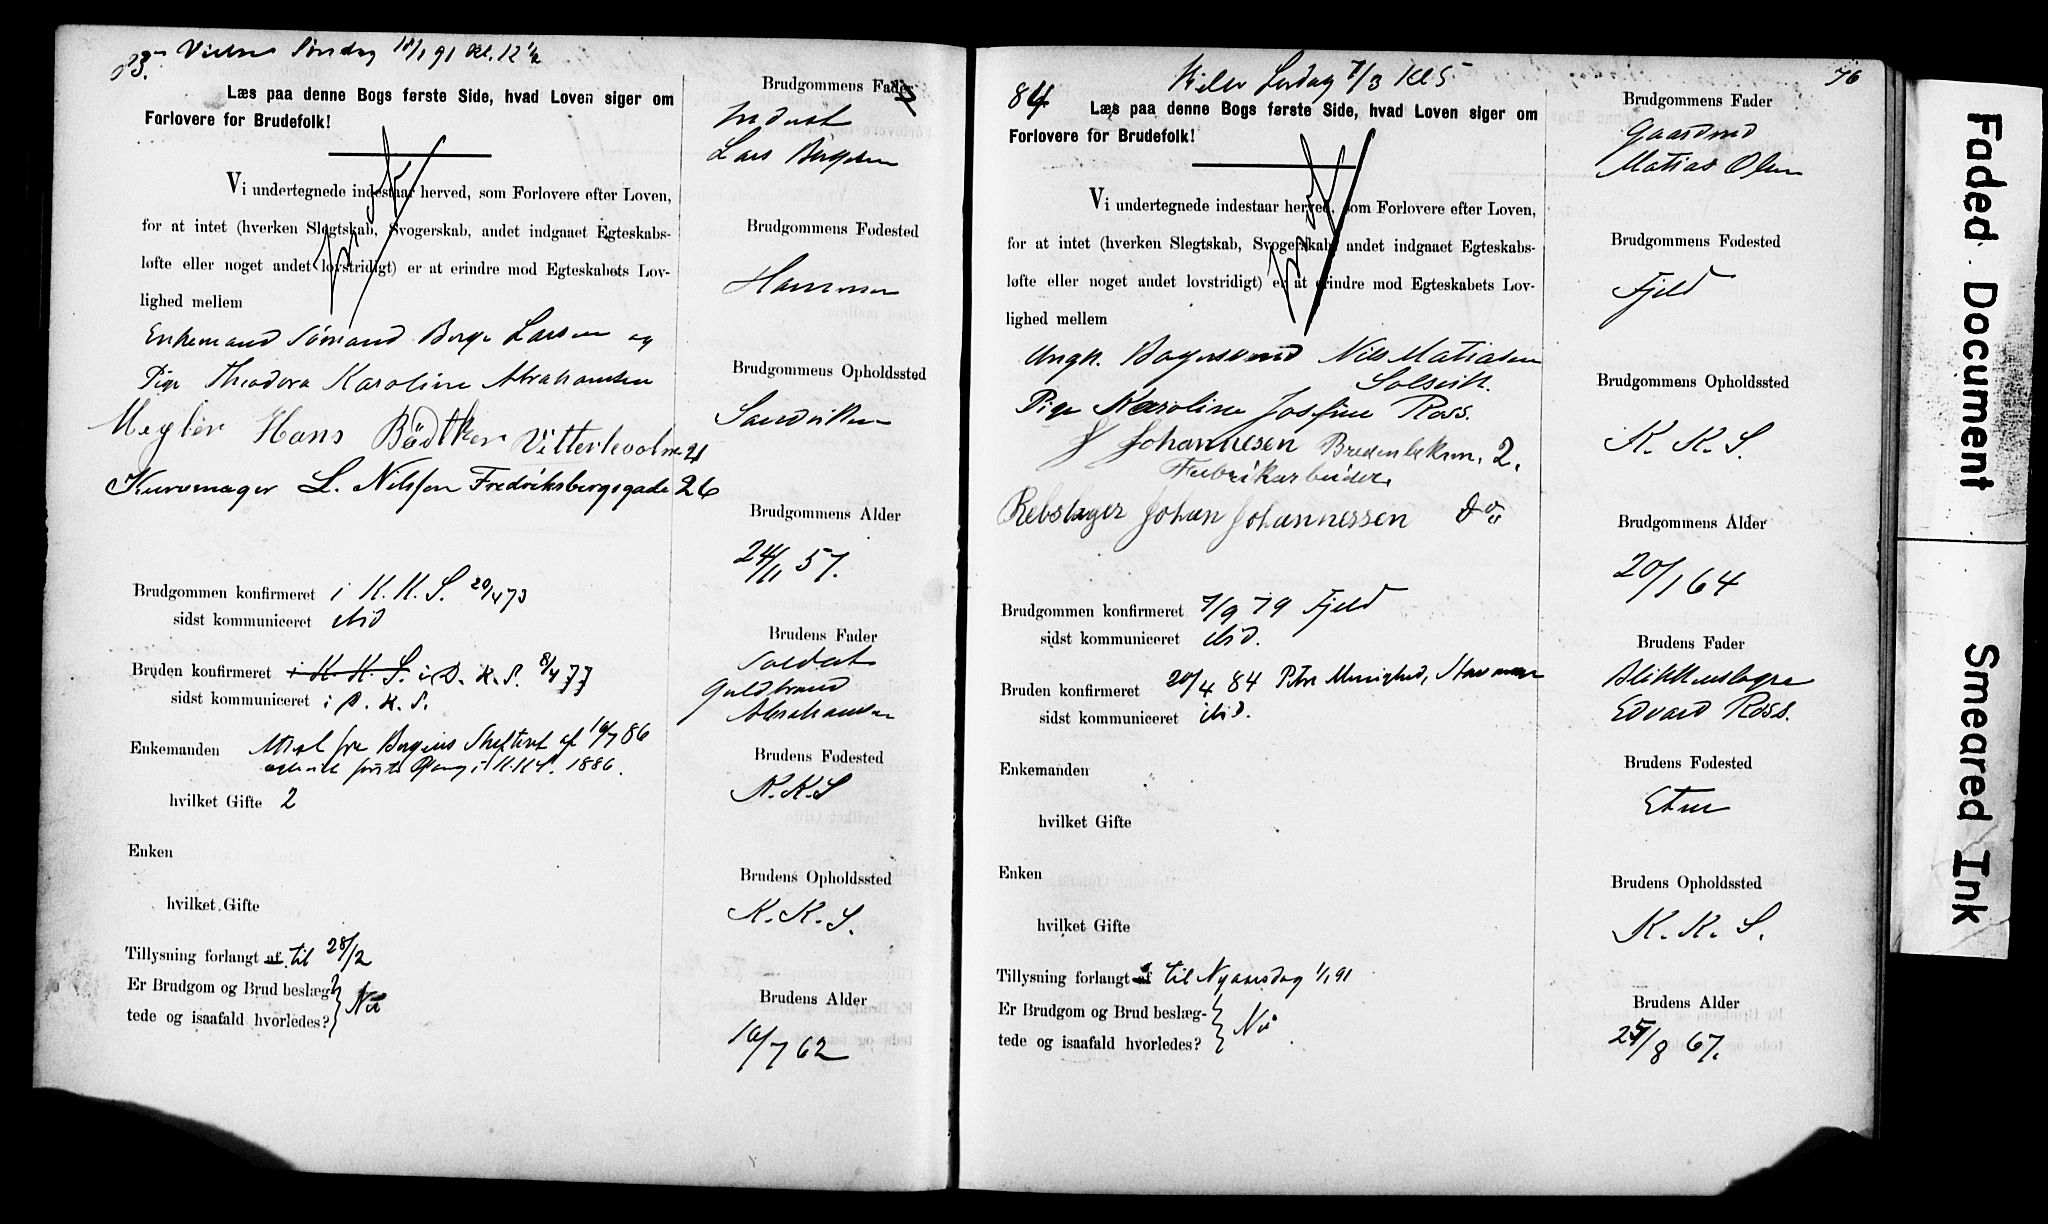 83.
Søndag 18/1 91 Kl. 12 1/2
Læs paa denne Bogs første Side, hvad Loven siger om
Forlovere for Brudefolk!
Vi undertegnede indestaar herved, som Forlovere efter Loven,
for at intet (hverken Slegtskab, Svogerskab, andet indgaaet Egteskabs-
løfte eller noget andet lovstridigt) er at erindre mod Egteskabets Lov-
lighed mellem
Enkemand Sømand Berge Larsen og
Pige Theodora Karoline Abrahamsen
Megler Hans Bødtker 21
Kurvmager L. Nilssen Fredriksbergsgade 26
Brudgommen konfirmeret i K. K. S. 20/4 73
sidst kommuniceret ibid
Bruden konfirmeret i K. K. S. i D. K. S. 8/4 77
sidst kommuniceret i D. K. S.
Enkemanden Attest fra Bergens Skifteret af 16/7 86
første Gang i K.K.S. 1886.
hvilket Gifte 2
Enken
hvilket Gifte
Tillysning forlangt af til 28/12
Er Brudgom og Brud beslæg-
tede og isaafald hvorledes? Nei
Brudgommens Fader
Inderst
Lars Bergesen
Brudgommens Fødested
Hammer
Brudgommens Opholdssted
Sandviken
Brudgommens Alder
24/11 57.
Brudens Fader
Soldat
Guldbrand
Abrahamsen
Brudens Fødested
K. K. S
Brudens Opholdssted
K. K. S.
Brudens Alder
16/7 62
76
84
Vielse Lørdag 7/3 Kl 5
Læs paa denne Bogs første Side, hvad Loven siger om
Forlovere for Brudefolk!
Vi undertegnede indestaar herved, som Forlovere efter Loven,
for at intet (hverken Slegtskab, Svogerskab, andet indgaaet Egteskabs-
løfte eller noget andet lovstridigt) er at erindre mod Egteskabets Lov-
lighed mellem
Ungk. Bagersvend Nils Matiasen
Solsvik.
Pige Karoline Josefine Ross.
J Johannesen 2.
Fabrikarbeider
Rebslager Johan Johannessen Do
Brudgommen konfirmeret 7/9 79 Fjeld
sidst kommuniceret ibid.
Bruden konfirmeret 20/4 84 Petri Menighed, Stavanger
sidst kommuniceret ibid.
Enkemanden
hvilket Gifte
Enken
hvilket Gifte
Tillysning forlangt af til Nyaarsdag 1/1 91
Er Brudgom og Brud beslæg-
tede og isaafald hvorledes? Nei
Brudgommens Fader
Gaardmd
Matias Olsen
Brudgommens Fødested
Fjeld
Brudgommens Opholdssted
K. K. S.
Brudgommens Alder
20/1 64
Brudens Fader
Blikkenslager
Edvard Ross.
Brudens Fødested
Etne
Brudens Opholdssted
K. K. S.
Brudens Alder
25/8 67.
Faded Document
Smeared Ink